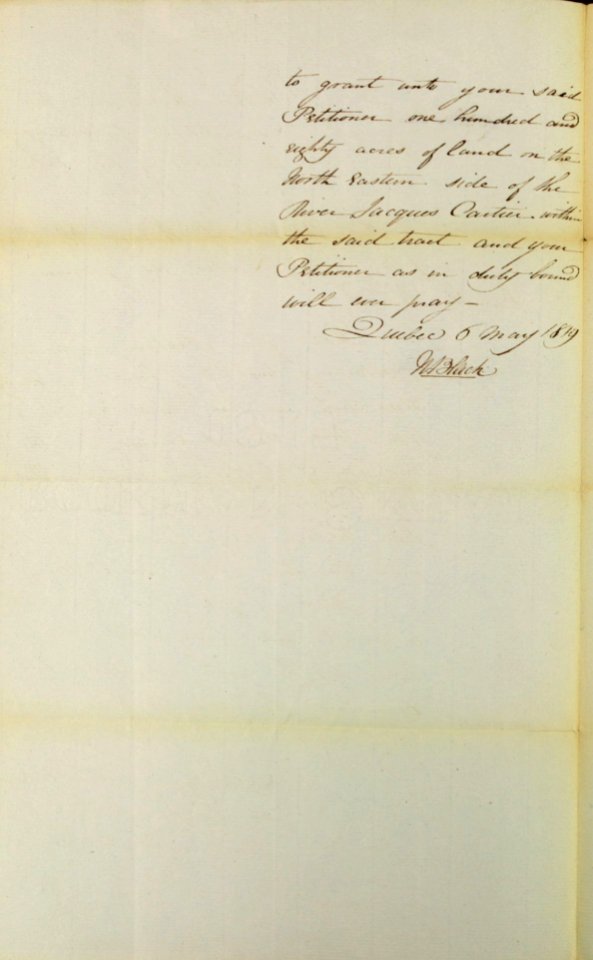 to grant unto your said
Petitioner one hundred and
eighty acres of land on the
North Eastern side of the
River Jacques Cartier within
the said tract and your
Petitioner as in duty bound
will ever pray —
Quebec 6 May 1819
Wm Black